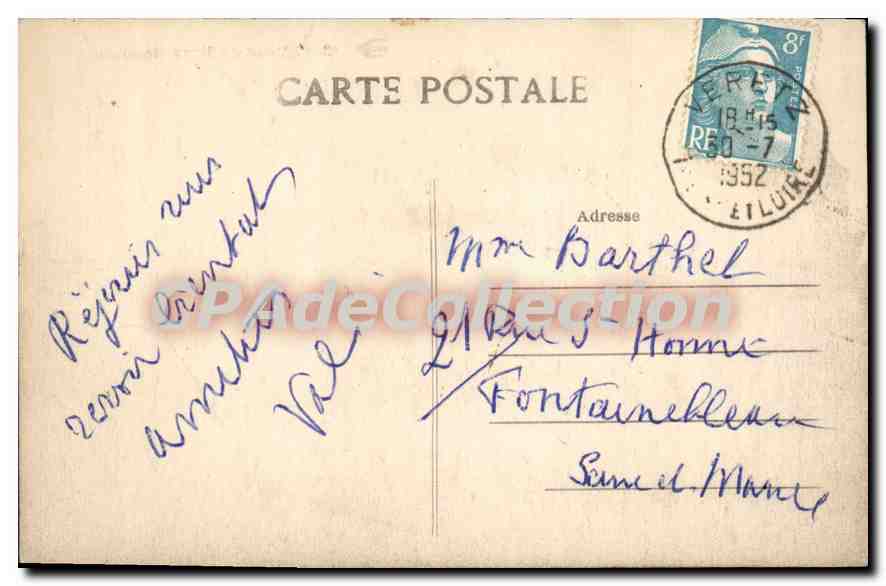 CARTE POSTALE
8f
RF
18H-15
30-7
1952
ET LOIRE
Adresse
Mme Barthel
21 Rue St Honoré
Fontainebleau
Seine et Marne
Réjouis vous
revoir bientôt
amitiés
SPAdeCollection